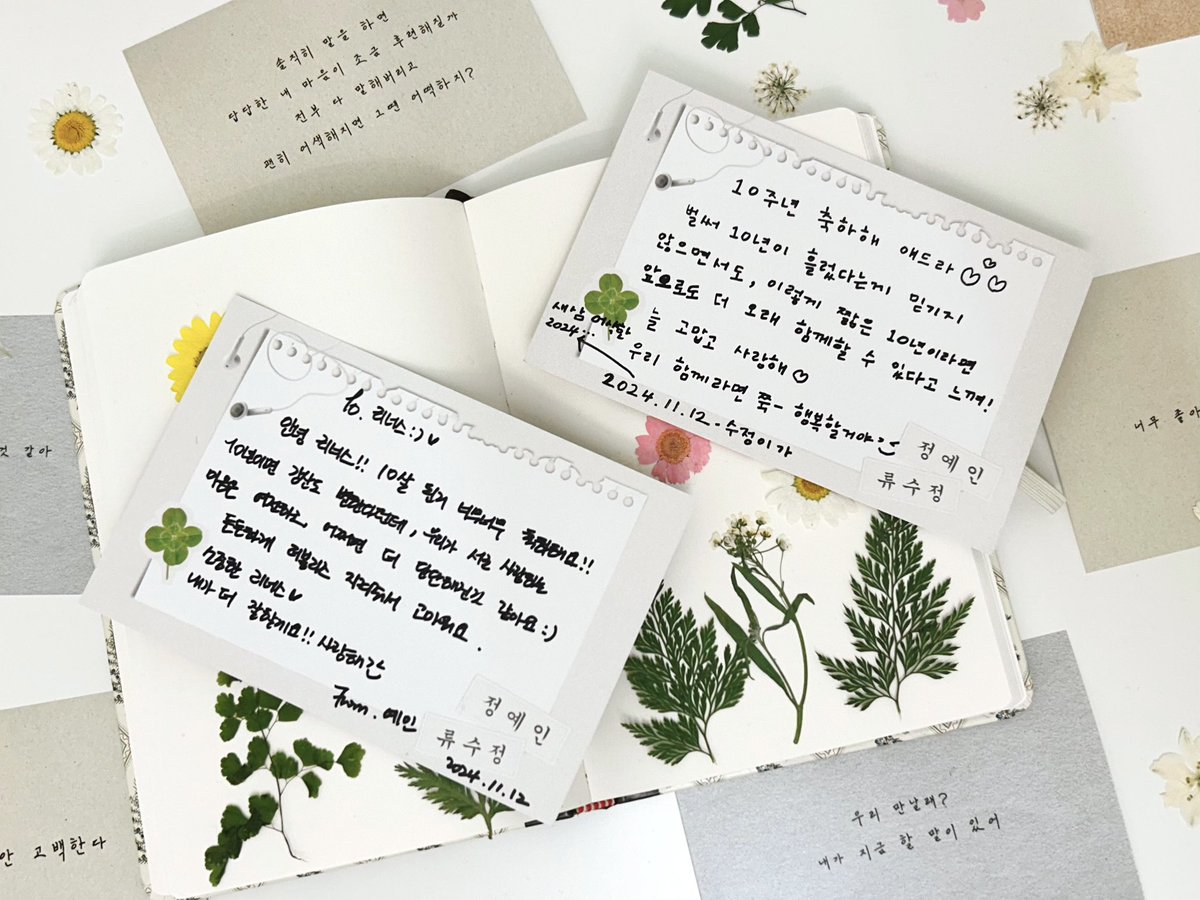 솔직히 말을 하면
답답한 내 마음이 조금 후련해질까
전부 다 말해버리고
괜히 어색해지면 그땐 어떡하지?
10주년 축하해 얘드라♡♡♡
벌써 10년이 흘렀다는게 믿기지
않으면서도, 이렇게 짧은 10년이라면
앞으로도 더 오래 함께할 수 있다고 느껴!
늘 고맙고 사랑해♡
우리 함께라면 쭉- 행복할거야
2024.11.12 - 수정이가
새삼
2024..
정예인
류수정
to. 리너스:)♥
안녕 리너스!! 10살 된거 너무너무 축하해요!!
10년이면 강산도 변한다던데, 우리가 서로 사랑하는
마음은 여전하고, 어쩌면 더 단단해진것 같아요:)
든든하게 러블리즈 지켜줘서 고마워요.
소중한 리너스♥
내가 더 잘할게요!! 사랑해
From. 예인
정예인
류수정
2024.11.12
것 같아
너무 좋아
안 고백한다
우리 만날래?
내가 지금 할 말이 있어